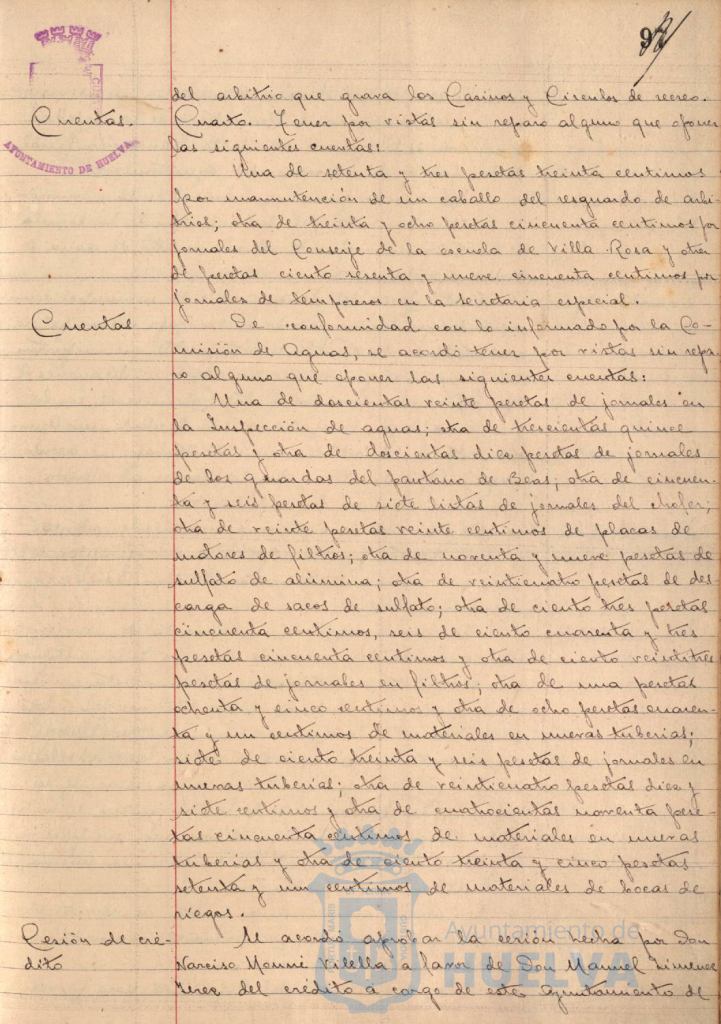 del arbitrio que grava los Casinos y Circulos de recreo.
Cuentas.
Cuarto. Tener por vistas sin reparo alguno que oponer
las siguientes cuentas:
AYUNTAMIENTO DE HUELVA
Una de setenta y tres pesetas treinta centimos
por manutención de un caballo del resguardo de arbi-
trios; otra de treinta y ocho pesetas cincuenta centimos por
jornales del Conserje de la escuela de Villa Rosa y otra
de pesetas ciento sesenta y nueve cincuenta centimos por
jornales de temporeros en la Secretaria especial.
Cuentas
De conformidad con lo informado por la Co-
misión de Aguas, se acordó tener por vistas sin repa-
ro alguno que oponer las siguientes cuentas:
Una de doscientas veinte pesetas de jornales en
la Inspección de aguas; otra de trescientas quince
pesetas y otra de doscientas diez pesetas de jornales
de los guardas del pantano de Beas; otra de cincuen-
ta y seis pesetas de siete listas de jornales del chofer;
otra de veinte pesetas veinte centimos de placas de
motores de filtros; otra de noventa y nueve pesetas de
sulfato de alumina; otra de veinticuatro pesetas de des
carga de sacos de sulfato; otra de ciento tres pesetas
cincuenta centimos, seis de ciento cuarenta y tres
pesetas cincuenta centimos y otra de ciento veintitres
pesetas de jornales en filtros; otra de una pesetas
ochenta y cinco centimos y otra de ocho pesetas cuaren-
ta y un centimos de materiales en nuevas tuberias;
siete de ciento treinta y seis pesetas de jornales en
nuevas tuberias; otra de veinticuatro pesetas diez y
siete centimos y otra de cuatrocientas noventa pese-
tas cincuenta centimos de materiales en nuevas
tuberias y otra de ciento treinta y cinco pesetas
setenta y un centimos de materiales de bocas de
riegos.
Cesión de cré-
dito
Se acordó aprobar la cesión hecha por Don
Narciso Monné Vilella a favor de Don Manuel Jimenez
Jerez del crédito a cargo de este Ayuntamiento de
Ayuntamiento de
HUELVA